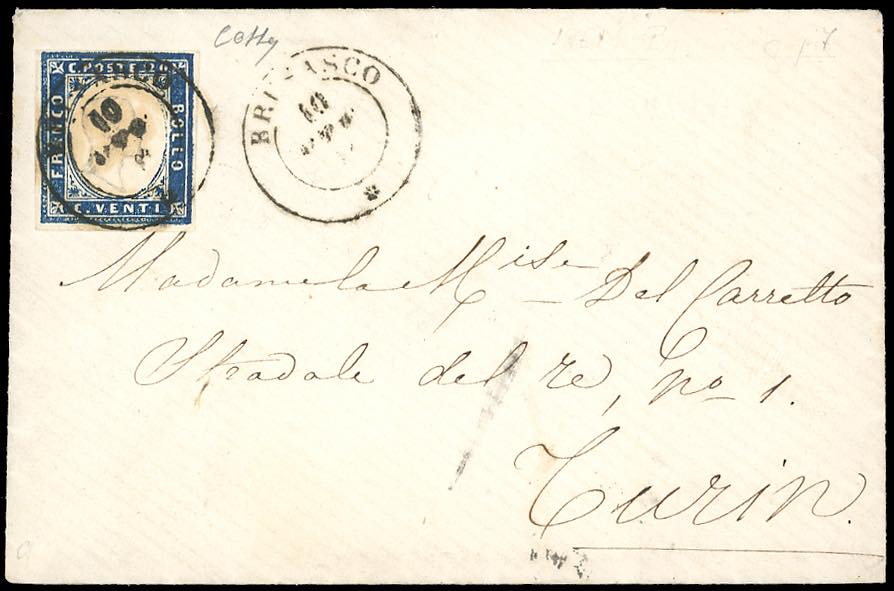 C. POSTE 20
FRANCO
BOLLO
C. VENTI
10
BRICASCO
10
Madame la Mise Del Carretto
Stradale del re, no 1.
Turin